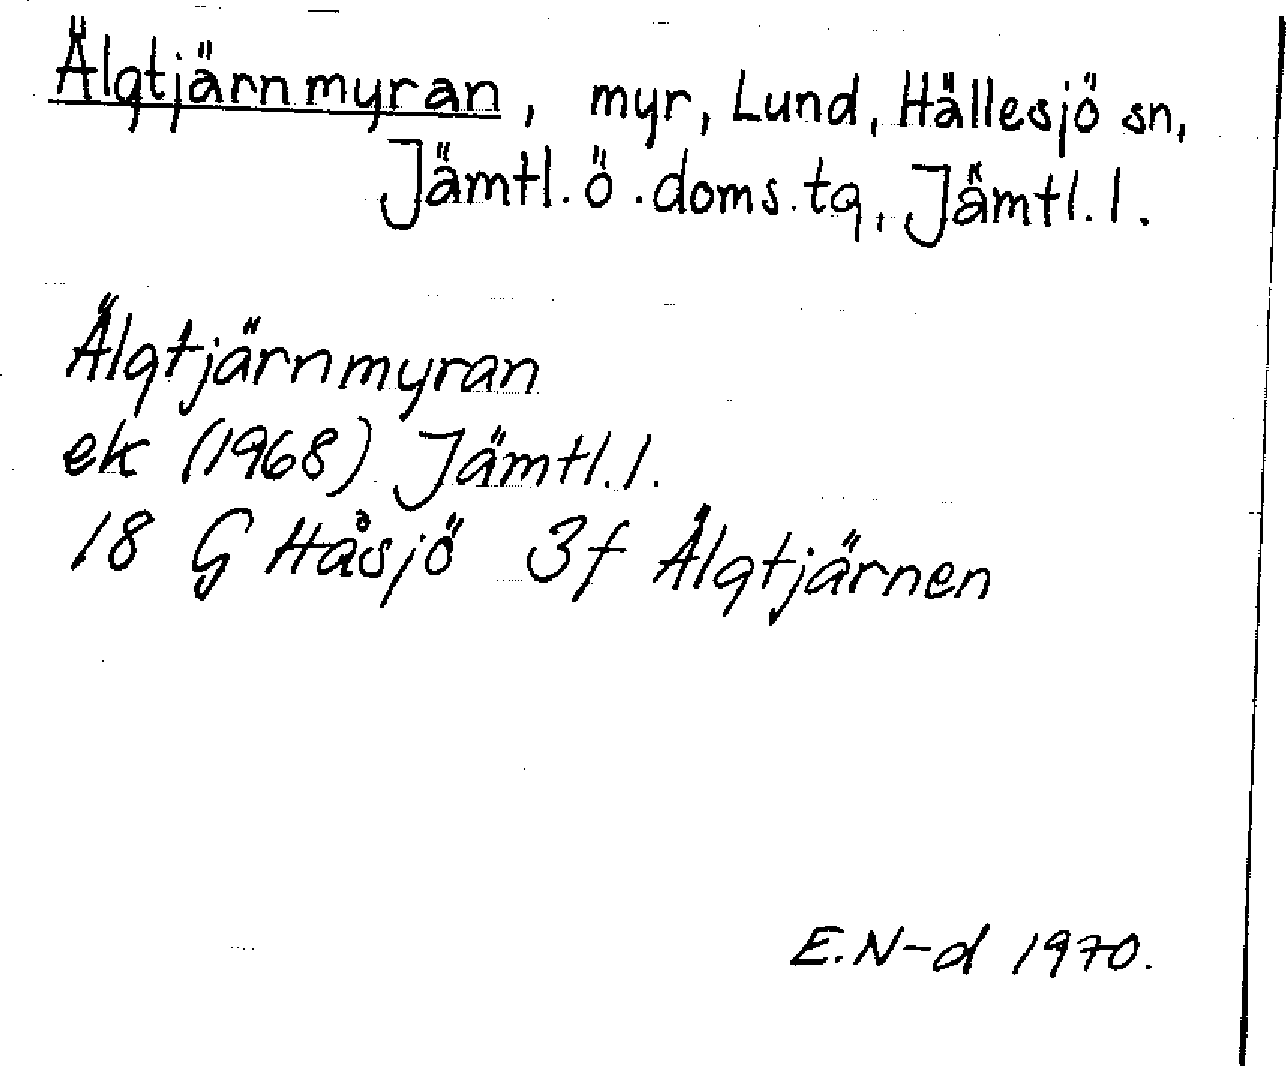 Älgtjärnmyran, myr, Lund, Hällesjö sn,
Jämtl. ö. doms. tg, Jämtl. l.
Älgtjärnmyran
ek (1968) Jämtl. l.
18 G Håsjö 3f Älgtjärnen
E. N-d 1970.